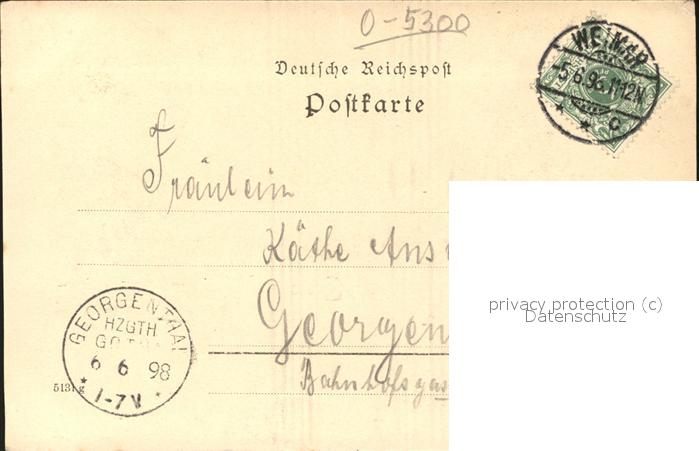 O-5300
Deutsche Reichspost
Postkarte
WEIMAR
5.6.98.11-12N
* * c
Fräulein
Käthe
Georgen
Bahnhofsgas
GEORGENTHAL
HZGTH
GOTHA
6 6 98
* 1-7V *
privacy protection (c)
Datenschutz